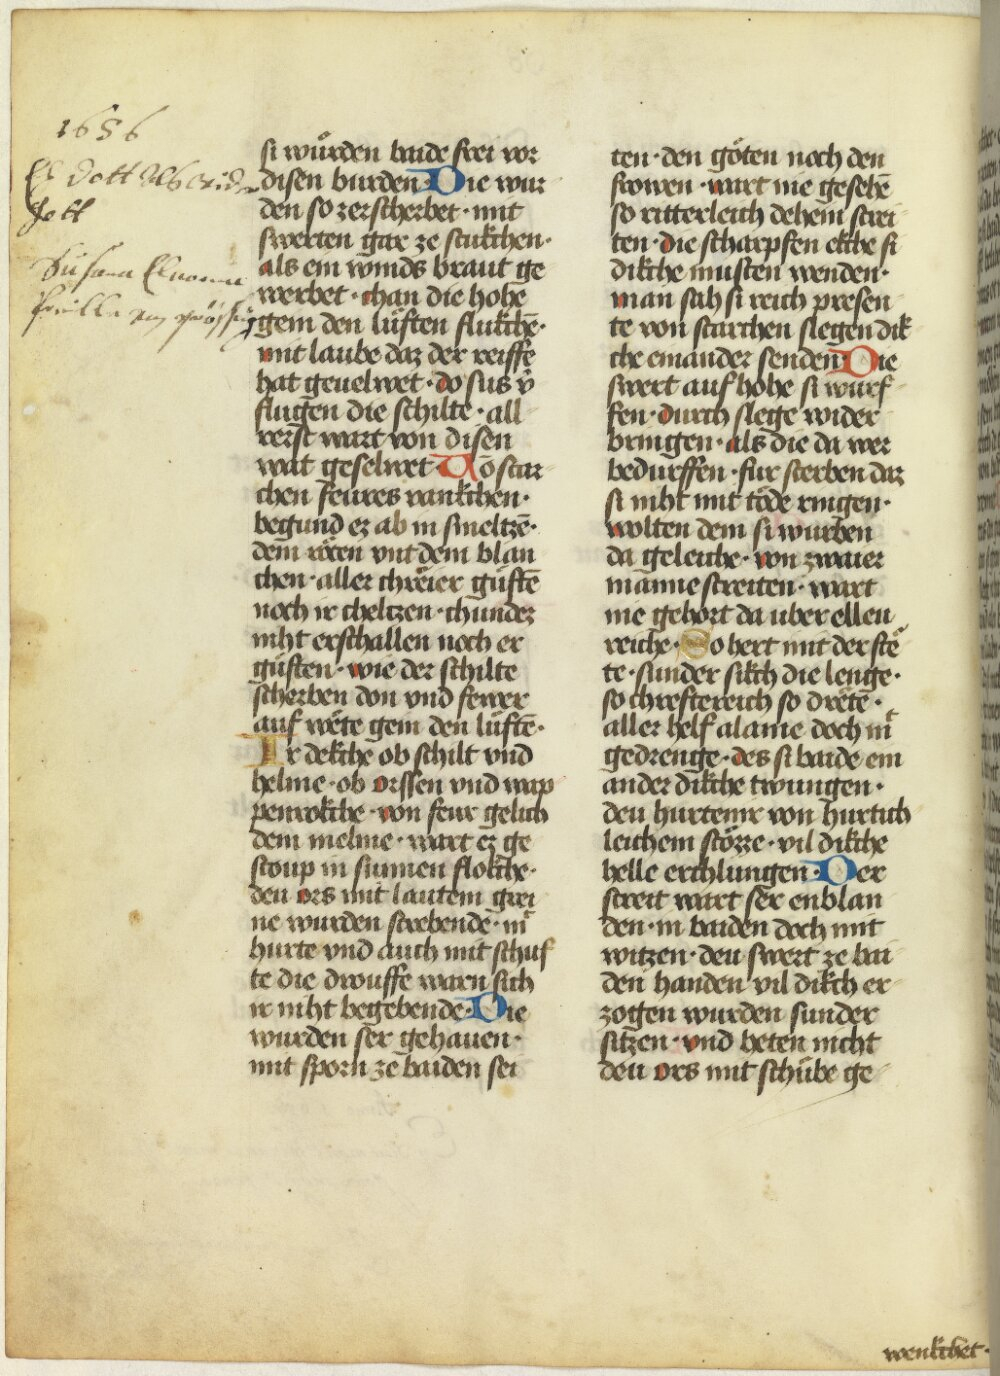 1656
Gott
Susana
si wuͦrden baide frei vor
disen burden· Die wur
den so zerscherbet· mit
swerten gar ze stukchen·
als ein winds braut ge
werbet· chan die hohe
gem den luͤften flukchē·
mit laube daz der reiffe
hat geuelwet· do sus v̄
flugen die schilte· all
rerst wart von disen
wat geselwet· Ao star
chen feures vankchen·
begund ez ab in smeltzē·
dem roͤten vnt dem blan
chen· aller chreier guͤftē
noch ir cheltzen· chundez
niht erschallen noch er
guͤften· wie der schilte
scherben don vnd fewer
auf weͤte gem den luͤftē·
Ir dekche ob schilt vnd
helme· ob orssen vnd wap
penrokche· von feur gelich
dem melme· wart ez ge
stoup in sinnen flokche·
deu ors mit lautem grei
ne wurden strebende· mͣ
hurte vnd auch mit schuf
te die drouffe warn sich
ir niht begebende· Die
wurden ser gehauen·
mit sporn ze baiden sei
ten· den goͤten noch den
frowen· wart nie gesehē
so ritterleich dehein strei
ten· die scharpfen ekche si
dikche musten wenden·
man sach si reich presen
te von starchen slegen dik
che einander senden· Die
swert auf hohe si wurf
fen· durch slege wider
bringen· als die da wer
bedurffen· fur sterben daz
si niht mit tode ringen·
wolten dem si wurben
da geleiche· von zwaier
manne streiten· wart
nie gehort da uber ellen
reiche· So hert mit der steͤ
te· sunder sikch die lenge·
so chreftereich so dretē·
aller helf alaine doch mͭ
gedrenge· des si baide ein
ander dikche twungen·
deu hurtenir von hurtich
leichem stoͤzze· vil dikche
helle erchlungen· Der
streit wart ser enblan
den· in baiden doch mit
witzen· deu swert ze bai
den handen vil dikch er
zogen wurden sunder
sitzen· vnd heten nicht
deu ors mit schube ge
wenkchet·